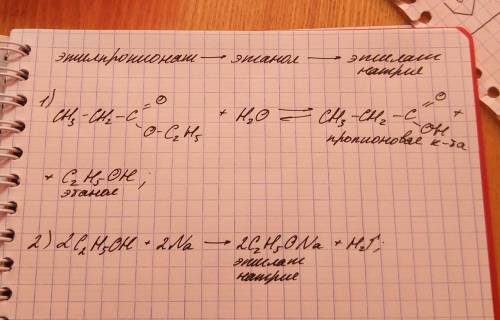 этилпропионат → этанол → этилат
натрия
1) CH₃-CH₂-C=O
O-C₂H₅ + H₂O ⇌ CH₃-CH₂-C=O
OH +
пропионовая к-та
+ C₂H₅OH;
этанол
2) 2C₂H₅OH + 2Na → 2C₂H₅ONa + H₂↑;
этилат
натрия